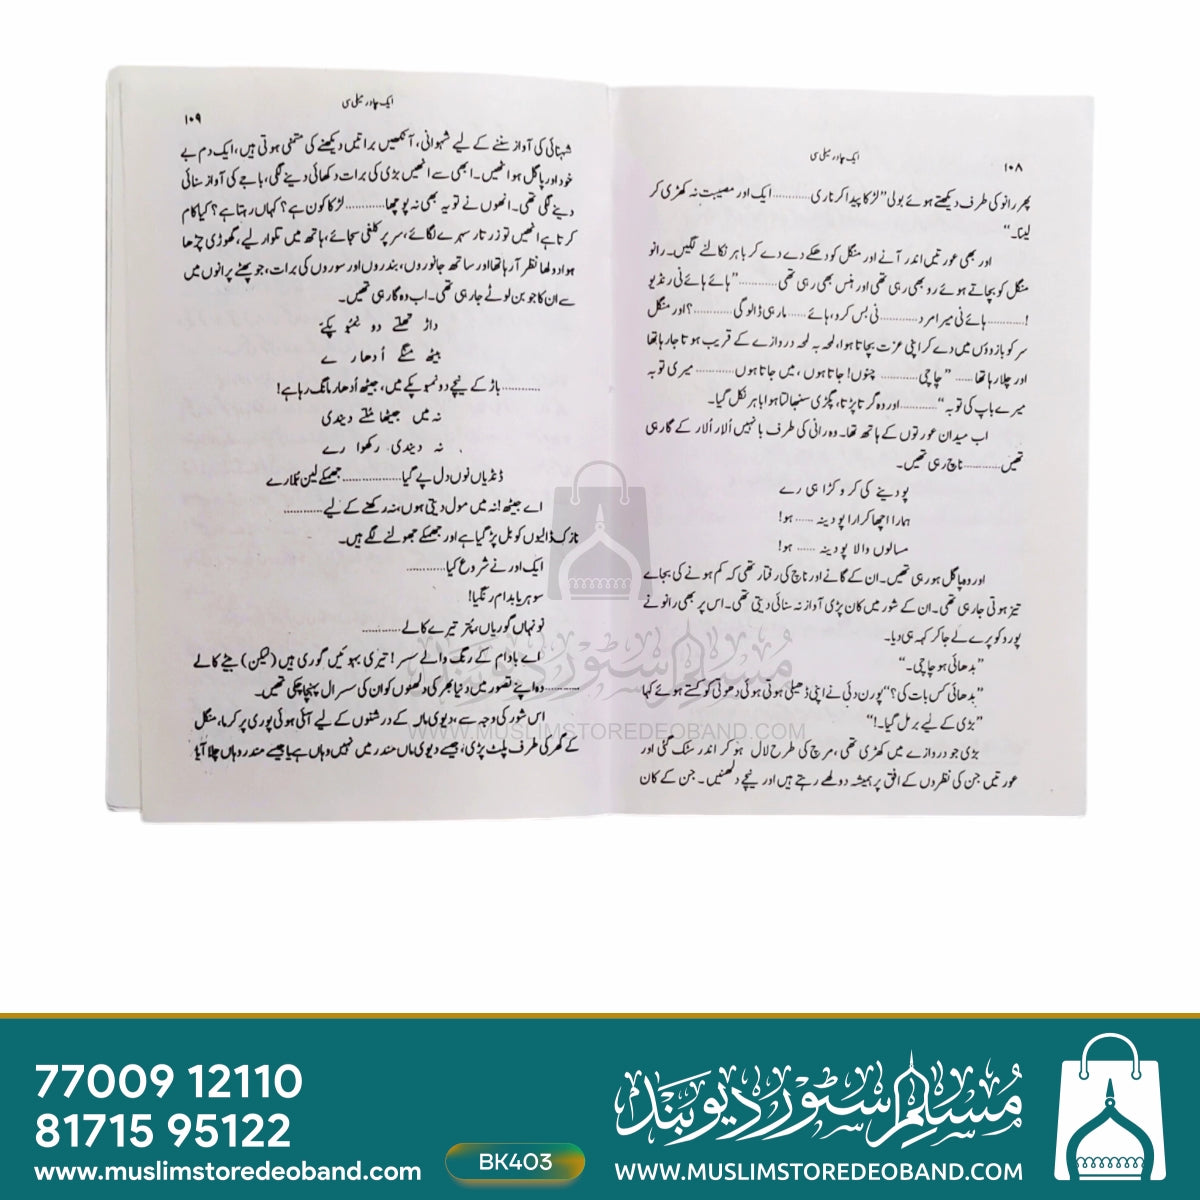 ۱۰۸
ایک چادر میلی سی
پھر رانو کی طرف دیکھتے ہوئے بولی ”لڑکا پیدا کرناری............ ایک اور مصیبت نہ کھڑی کر
لینا۔“
اور بھی عورتیں اندر آنے اور منگل کو دھکے دے دے کر باہر نکالنے لگیں۔ رانو
منگل کو بچاتے ہوئے رو بھی رہی تھی اور ہنس بھی رہی تھی............”ہائے ہائے نی رنڈیو
!............ ہائے نی میرا مرد............ نی بس کرو، ہائے ............ مار ہی ڈالو گی ............؟ اور منگل
سر کو بازوؤں میں دے کر اپنی عزت بچاتا ہوا، لمحہ بہ لمحہ دروازے کے قریب ہوتا جا رہا تھا
اور چلا رہا تھا ...... ”چاچی ............ چنوں! جاتا ہوں، میں جاتا ہوں ............ میری توبہ
میرے باپ کی توبہ“............ اور وہ گرتا پڑتا، پگڑی سنبھالتا ہوا باہر نکل گیا۔
اب میدان عورتوں کے ہاتھ تھا۔ وہ رانی کی طرف بانہیں اُلار اُلار کے گا رہی
تھیں............ ناچ رہی تھیں۔
پودینے کی کروکڑا ہی رے
ہمارا اچھا کرارا پودینہ ...... ہو!
مسالوں والا پودینہ ...... ہو!
اور وہ پاگل ہو رہی تھیں۔ ان کے گانے اور ناچ کی رفتار تھی کہ کم ہونے کی بجائے
تیز ہوتی جا رہی تھی۔ ان کے شور میں کان پڑی آواز نہ سنائی دیتی تھی۔ اس پر بھی رانو نے
پورو کو پرے لے جا کر کہہ ہی دیا۔
”بدھائی ہو چاچی۔“
”بدھائی کس بات کی؟“ پورن دئی نے اپنی ڈھیلی ہوتی ہوئی دھوتی کو کستے ہوئے کہا
”بڑی کے لیے بر مل گیا۔!“
بڑی جو دروازے میں کھڑی تھی، مرچ کی طرح لال ہو کر اندر سٹک گئی اور
عورتیں جن کی نظروں کے افق پر ہمیشہ دولھے رہتے ہیں اور نیچے دلھنیں۔ جن کے کان
ایک چادر میلی سی
۱۰۹
شہنائی کی آواز سننے کے لیے شہوانی، آنکھیں براتیں دیکھنے کی متمنی ہوتی ہیں، ایک دم بے
خود اور پاگل ہو اٹھیں۔ ابھی سے انھیں بڑی کی برات دکھائی دینے لگی، باجے کی آواز سنائی
دینے لگی تھی۔ انھوں نے تو یہ بھی نہ پوچھا............ لڑکا کون ہے؟ کہاں رہتا ہے؟ کیا کام
کرتا ہے انھیں تو زرتار سہرے لگائے، سر پر کلغی سجائے، ہاتھ میں تلوار لیے، گھوڑی چڑھا
ہوا دولھا نظر آ رہا تھا اور ساتھ جانوروں، بندروں اور سوروں کی برات، جو پھٹے پرانوں میں
سے ان کا جوبن لوٹے جا رہی تھی۔ اب وہ گا رہی تھیں۔
واڑ تھلّے دو نمبو پکّے
بیٹھ منگے اُدھارے
............ باڑ کے نیچے دو نمبو پکے ہیں، جیٹھ اُدھار مانگ رہا ہے!
نہ میں جیٹھا مُلّے دیندی
نہ دیندی رکھوا رے
ڈنڈیاں نوں دل پے گیا............ جھمکے لین ہلارے
اے جیٹھ! نہ میں مول دیتی ہوں، نہ رکھنے کے لیے............
نازک ڈالیوں کو بل پڑ گیا ہے اور جھمکے جھولنے لگے ہیں۔
ایک اور نے شروع کیا............
سوہریا بدام رنگیا!
نونہاں گوریاں، پُتر تیرے کالے ............
اے بادام کے رنگ والے سسر! تیری بہوئیں گوری ہیں (لیکن) بیٹے کالے
............ وہ اپنے تصور میں دنیا بھر کی دلھنوں کو ان کی سسرال پہنچا چکی تھیں۔
اس شور کی وجہ سے، دیوی ماں کے درشنوں کے لیے آئی ہوئی پوری پرکرما، منگل
کے گھر کی طرف پلٹ پڑی، جیسے دیوی ماں مندر میں نہیں وہاں ہے یا جیسے مندر وہاں چلا آیا
مسلم سٹور دیوبند
WWW.MUSLIMSTOREDEOBAND.COM
77009 12110
81715 95122
www.muslimstoredeoband.com
BK403
مسلم سٹور دیوبند
WWW.MUSLIMSTOREDEOBAND.COM